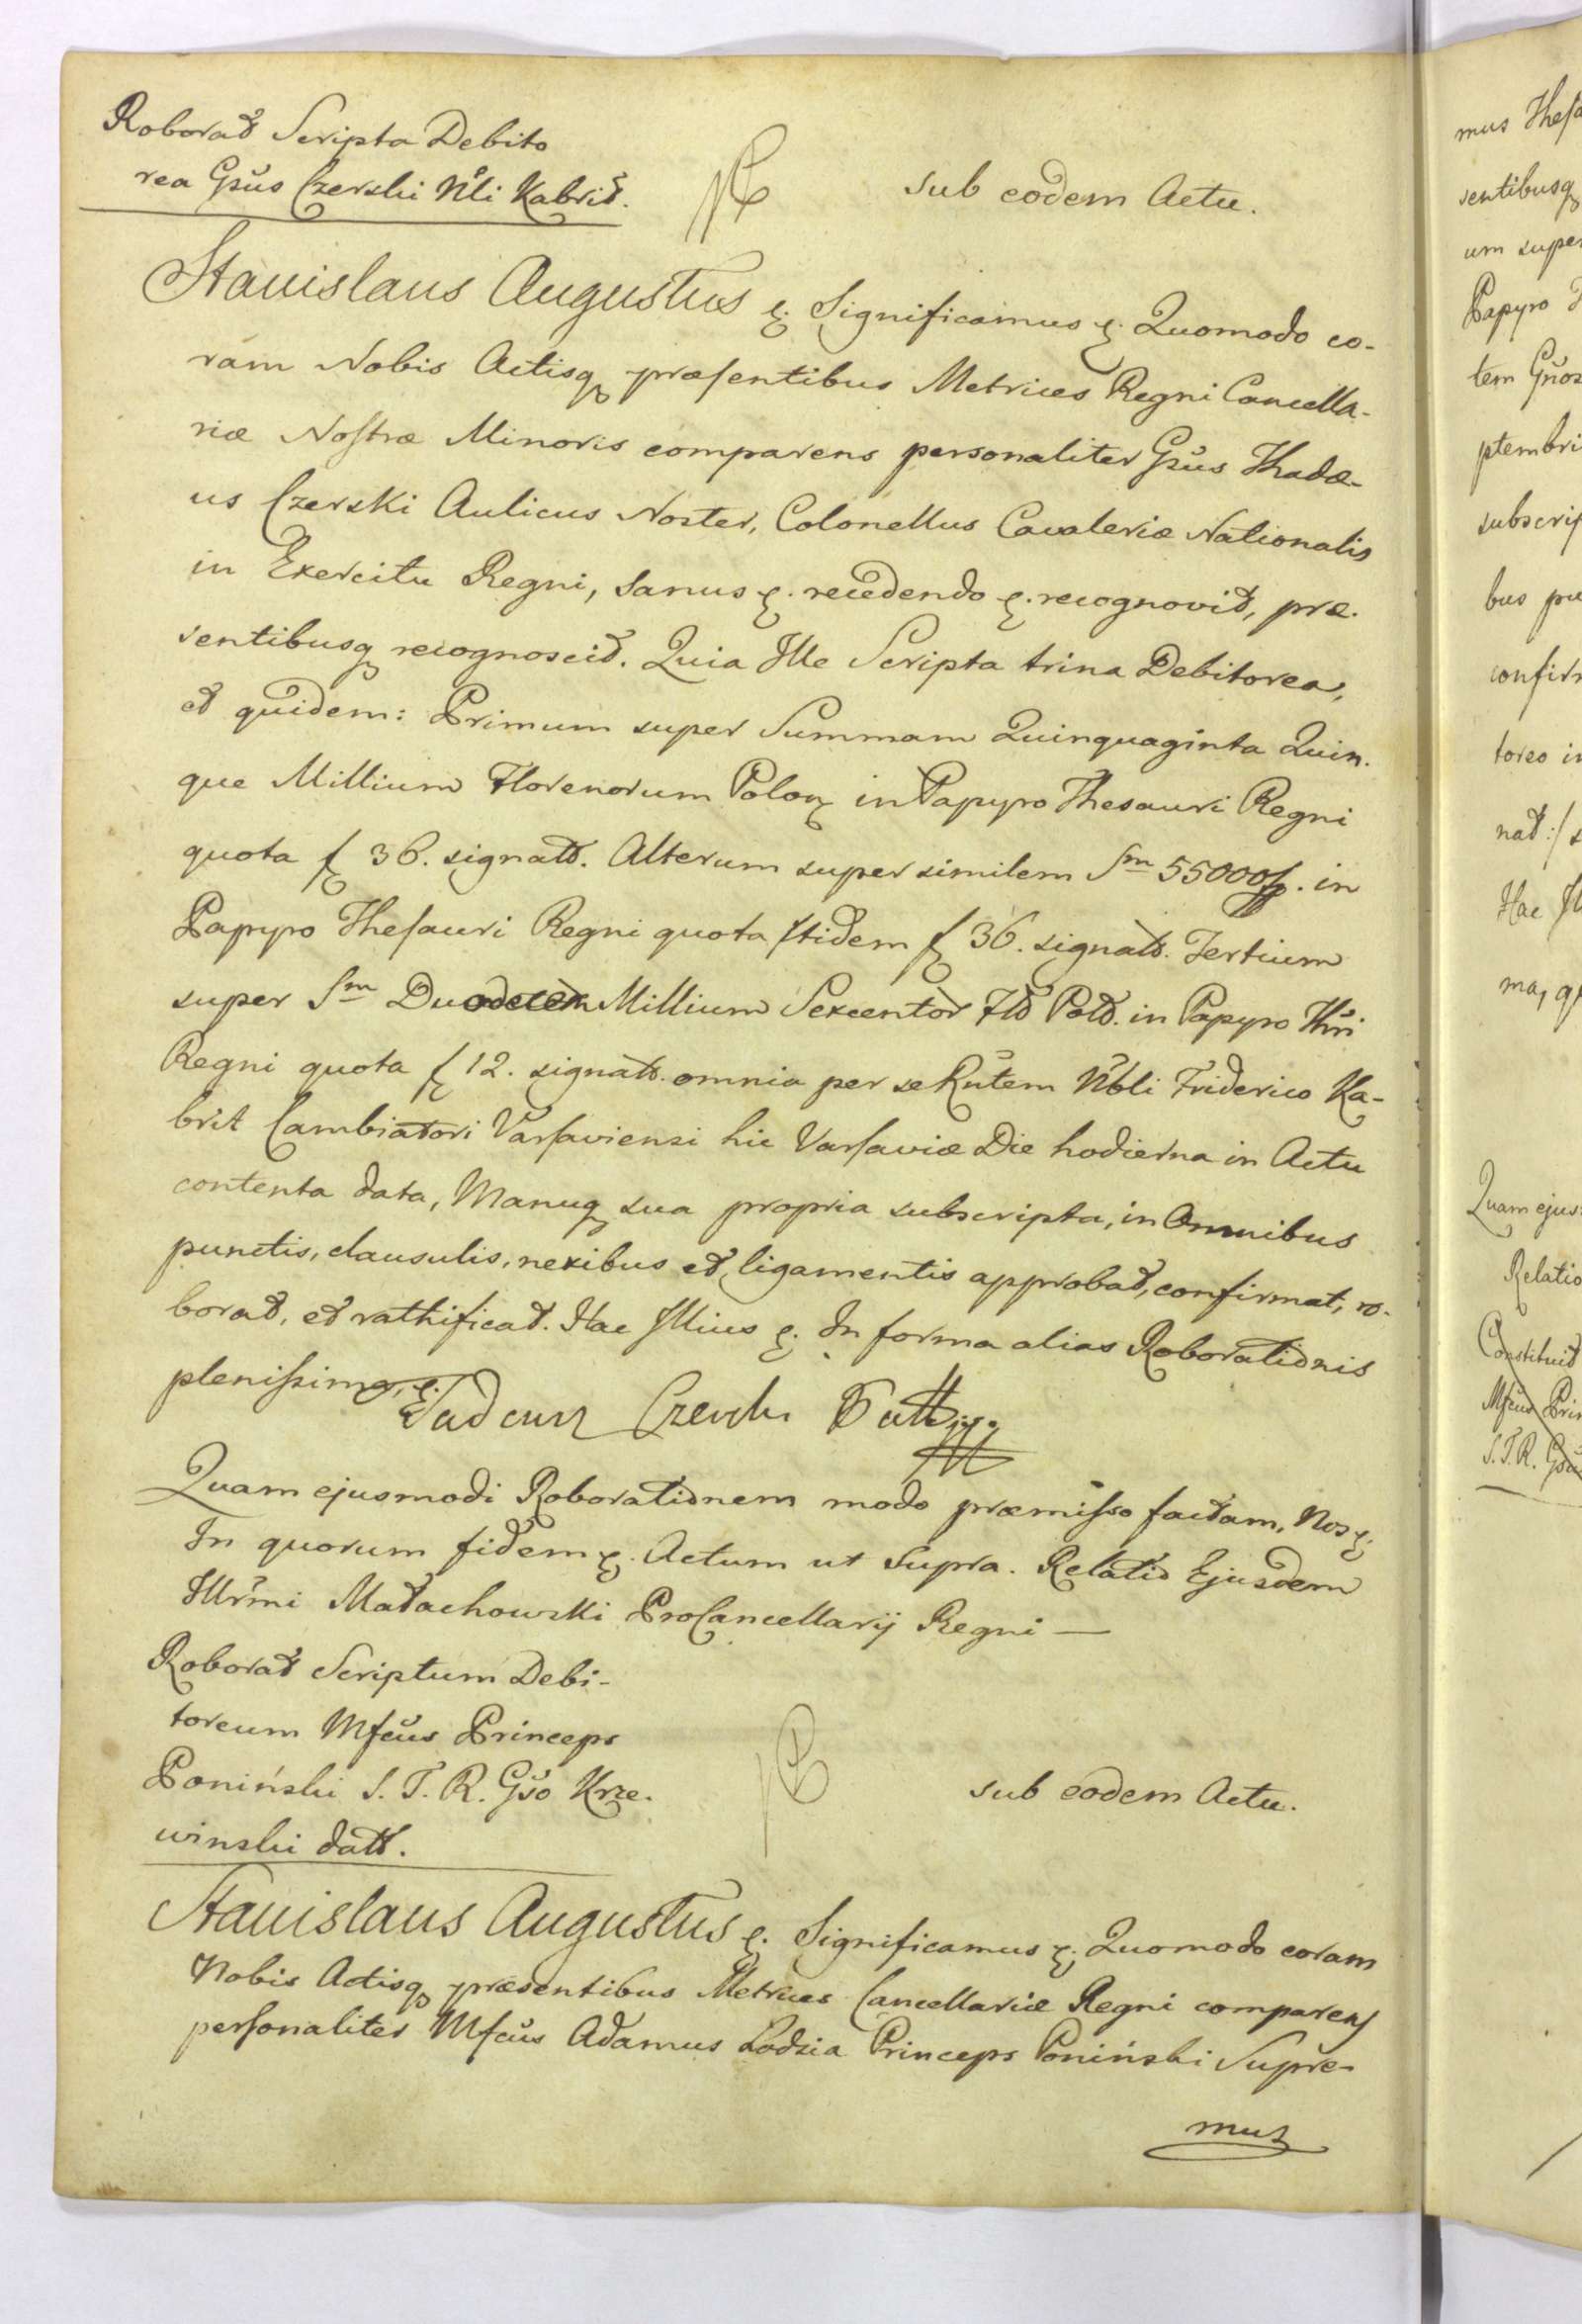 Roborat Scripta Debito
rea Gsus Czerski Nli Kabrit.
sub eodem Actu.
Stanislaus Augustus &. Significamus &. Quomodo co-
ram Nobis Actisq præsentibus Metrices Regni Cancella-
riæ Nostræ Minoris comparens personaliter Gsus Thadæ-
us Czerski Aulicus Noster, Colonellus Cavaleriæ Nationalis
in Exercitu Regni, Sanus &. recedendo &. recognovit, præ-
sentibusq recognoscit. Quia Ille Scripta trina Debitorea,
et quidem: Primum super Summam Quinquaginta Quin-
que Millium Florenorum Polon in Papyro Thesauri Regni
quota f 36. signatt. Alterum super similem Sm 55000 fp. in
Papyro Thesauri Regni quota Itidem f 36. signatt. Tertium
super Sm Duodecem Millium Sexcentor Fld Pold. in Papyro Thri
Regni quota f 12. signatt. omnia per se Rntem Nbli Friderico Ka-
brit Cambiatori Varsaviensi hic Varsaviæ Die hodierna in Actu
contenta data, Manuq sua propria subscripta, in Omnibus
punctis, clausulis, nexibus et ligamentis approbat, confirmat, ro-
borat, et rathificat. Hac Illius &. In forma alias Roborationis
plenissima, &.
Tadeusz Czerski
Quam ejusmodi Roborationem modo præmisso factam, Nos &.
In quorum fidem &. Actum ut Supra. Relatio Ejusdem
Illrmi Małachowski ProCancellarij Regni —
Roborat Scriptum Debi-
toreum Mfcus Princeps
Poniński S. T. R. Gso Krze-
winski datt.
sub eodem Actu.
Stanislaus Augustus &. Significamus &. Quomodo coram
Nobis Actisq præsentibus Metrices Cancellariæ Regni comparens
personaliter Mfcus Adamus Lodzia Princeps Poniński Supre-
mus
mus
sentibusq
um super
Papyro
tem Gnos
ptembri
subscrip
bus
toreo in
nat:/
Hac
ma,
Quam ejus
Relatio
Constituit
Mfcus Prin
S. T. R.